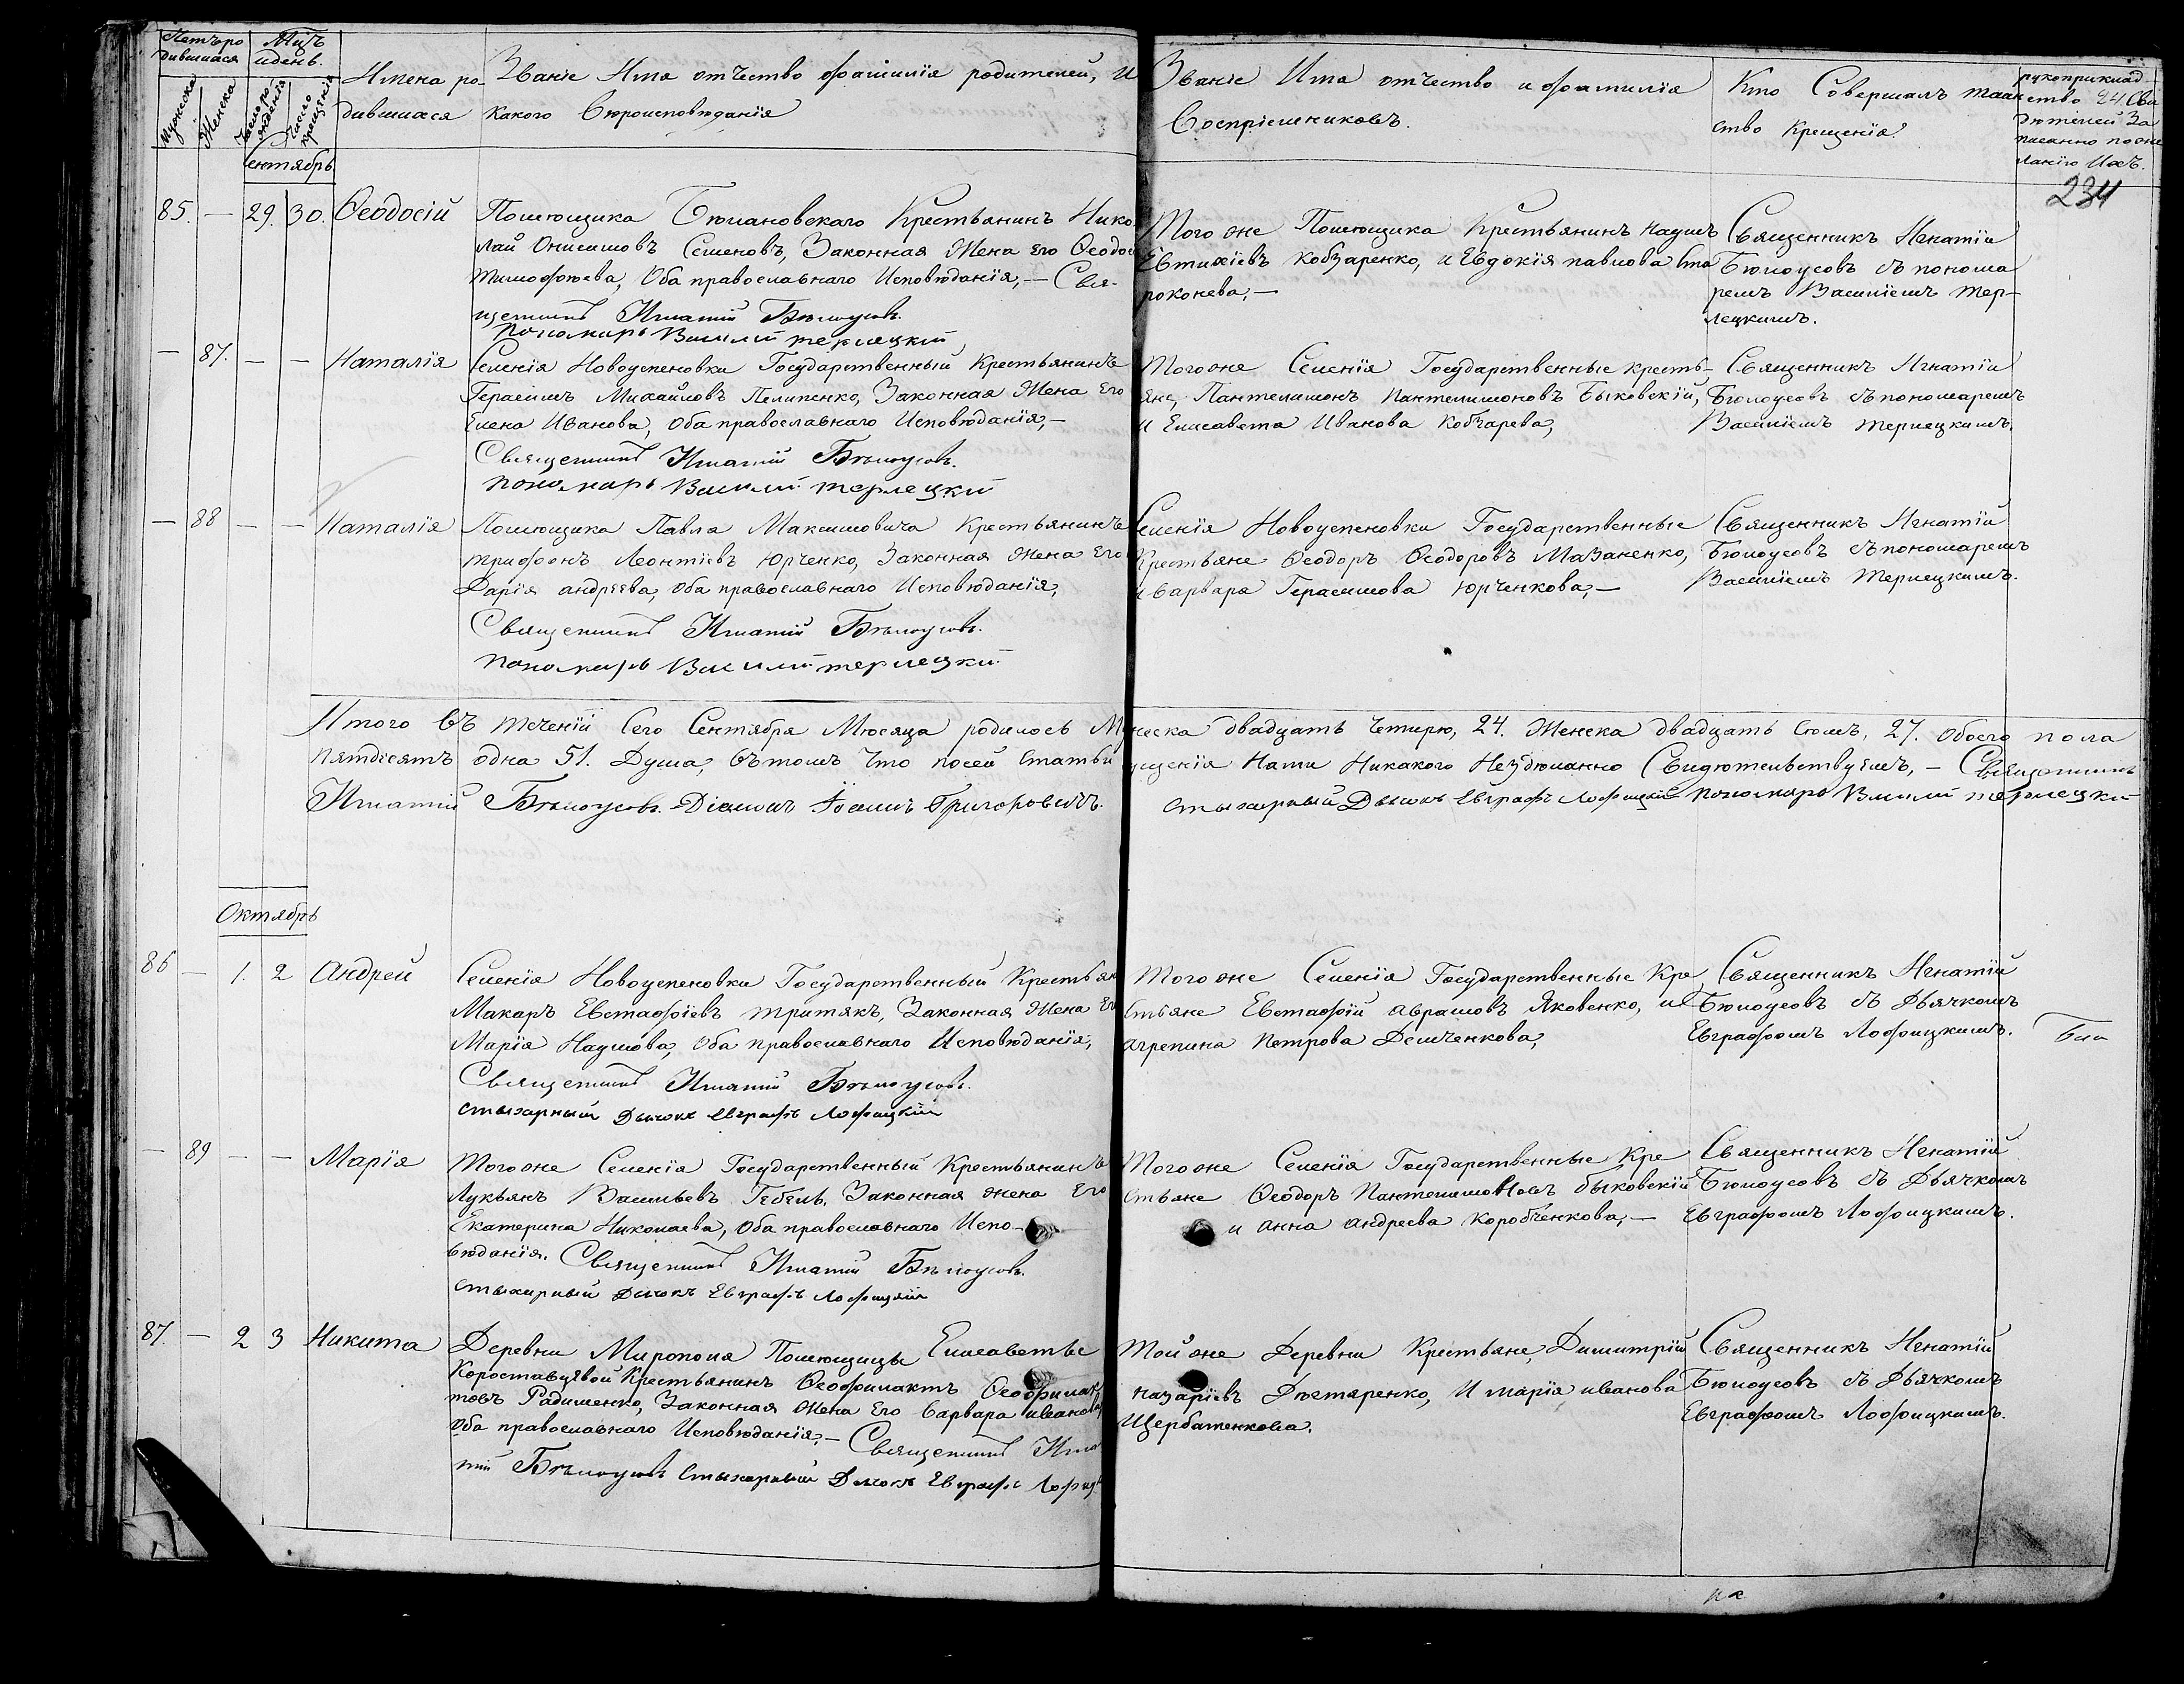 Щетъ ро
дившихся
Мцъ
и день.
Мужеска
Женска
Число ро
жденія
Число
крещенія
Имена ро-
дившихся
Званіе Имя отчество фамилія родителей, и
какого Вѣроисповѣданія
Званіе Имя отчество и фамилія
Воспріемниковъ.
Кто Совершалъ таин
ство Крещенія
рукоприклад
ство Сви
дѣтелей За
писанно по же
ланію Ихъ.
Сентябрь
234
85. — 29. 30. Ѳеодосій
Помѣщика Бѣлановскаго Крестьянинъ Нико
лай Онисимовъ Семеновъ, Законная Жена Его Ѳеодос
Тимофѣева, Оба православнаго Исповѣданія, — Свя-
щенникъ Игнатій Бѣлоусовъ.
Пономарь Василій Терлецкій
Того же Помѣщика Крестьянинъ Наумъ
Евтихіевъ Кобзаренко, и Евдокія павлова
роконева, —
Священникъ Игнатій
Бѣлоусовъ съ понома
ремъ Василіемъ Тер-
лецкимъ.
— 87. — — Наталія
Селенія Новоуспеновки Государственный Крестьянинъ
Герасимъ Михайловъ Пелипенко, Законная Жена Его
Елена Иванова, Оба православнаго Исповѣданія, —
Священникъ Игнатій Бѣлоусовъ.
Пономарь Василій Терлецкій
Того же Селенія Государственные кресть-
яне, Пантелимонъ Пантелимоновъ Быковскій,
и Елисавета Иванова Кобзарева,
Священникъ Игнатій
Бѣлоусовъ съ пономаремъ
Василіемъ Терлецкимъ.
— 88 — — Наталія
Помѣщика Павла Максимовича Крестьянинъ
Трифонъ Леонтіевъ Юрченко, Законная Жена Его
Дарія андреева, Оба православнаго Исповѣданія,
Священникъ Игнатій Бѣлоусовъ.
Пономарь Василій Терлецкій
Селенія Новоуспеновки Государственные
Крестьяне Ѳеодоръ Ѳеодоровъ Мазаненко,
и Варвара Герасимова Юрченкова, —
Священникъ Игнатій
Бѣлоусовъ съ пономаремъ
Василіемъ Терлецкимъ.
Итого въ теченіи Сего Сентября Мѣсяца родилось Мужеска двадцать Четирѣ, 24. Женска двадцать Семъ, 27. обоего пола
пятдесятъ одна 51. Душа, въ томъ Что посей Статьи упущенія Нами Никакого Нездѣланно Свидѣтельствуемъ, — Священникъ
Игнатій Бѣлоусовъ. Діаконъ Іоаннъ Григоровичъ. Стыхарный Дьячокъ Евграфъ Лофицкій Пономарь Василій Терлецкій
Октябрь
86 — 1. 2 Андрей
Селенія Новоуспеновки Государственный Крестьян
Макаръ Евстафіевъ Тритякъ, Законная Жена Его
Марія Наумова, Оба православнаго Исповѣданія,
Священникъ Игнатій Бѣлоусовъ.
Стыхарный Дьячокъ Евграфъ Лофицкій
Того же Селенія Государственные Кре
стьяне Евстафій Аврамовъ Яковенко, и
Агрепина Петрова Демченкова,
Священникъ Игнатій
Бѣлоусовъ съ Дьячкомъ
Евграфомъ Лофицкимъ.
— 89 — — Марія
Того же Селенія Государственный Крестьянинъ
Лукьянъ Васильевъ Гебель, Законная жена Его
Екатерина Николаева, Оба православнаго Испо-
вѣданія. Священникъ Игнатій Бѣлоусовъ.
Стыхарный Дьячокъ Евграфъ Лофицкій
Того же Селенія Государственные Кре
стьяне Ѳеодоръ Пантелимоновъ быковскій
и Анна Андреева Коробченкова, —
Священникъ Игнатій
Бѣлоусовъ съ Дьячкомъ
Евграфомъ Лофицкимъ.
87. — 2 3 Никита
Деревни Мирополя Помѣщицы Елисаветы
Короставцевой Крестьянинъ Ѳеофилактъ Ѳеофилак
товъ Радименко, Законная Жена Его Варвара иванова
Оба православнаго Исповѣданія, — Священникъ Игна
тій Бѣлоусовъ Стыхарный Дьячокъ Евграфъ Лофиц
Той же Деревни Крестьяне, Димитрій
Назаріевъ Дегтяренко, И марія иванова
Щербатенкова.
Священникъ Игнатій
Бѣлоусовъ съ Дьячкомъ
Евграфомъ Лофицкимъ.